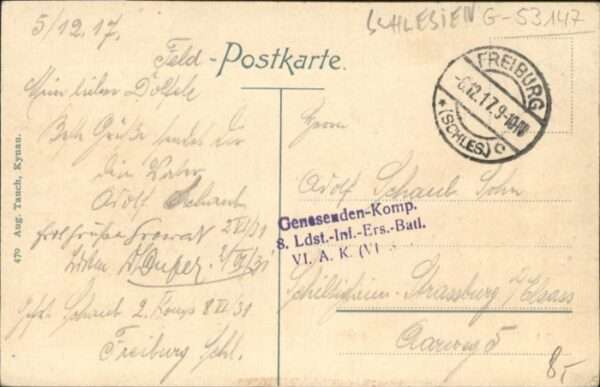 SCHLESIEN G-53147
5/12.17.
Feld-Postkarte.
FREIBURG
-6.12.17.9-10N
* (SCHLES.) c
Mein lieber Dolfele
Beste Grüße sendet dir
dein Vater
Adolf Schaub
2 VI/31
Gefr. Schaub 2. Komp 8 VI 31
Freiburg Schl.
Herrn
Adolf Schaub Sohn
Genesenden-Komp.
8. Ldst.-Inf.-Ers.-Batl.
VI. A. K. (VI
Schiltigheim-Strassburg i/Elsass
Aarweg 5
8,-
470 Aug. Tauch, Kynau.